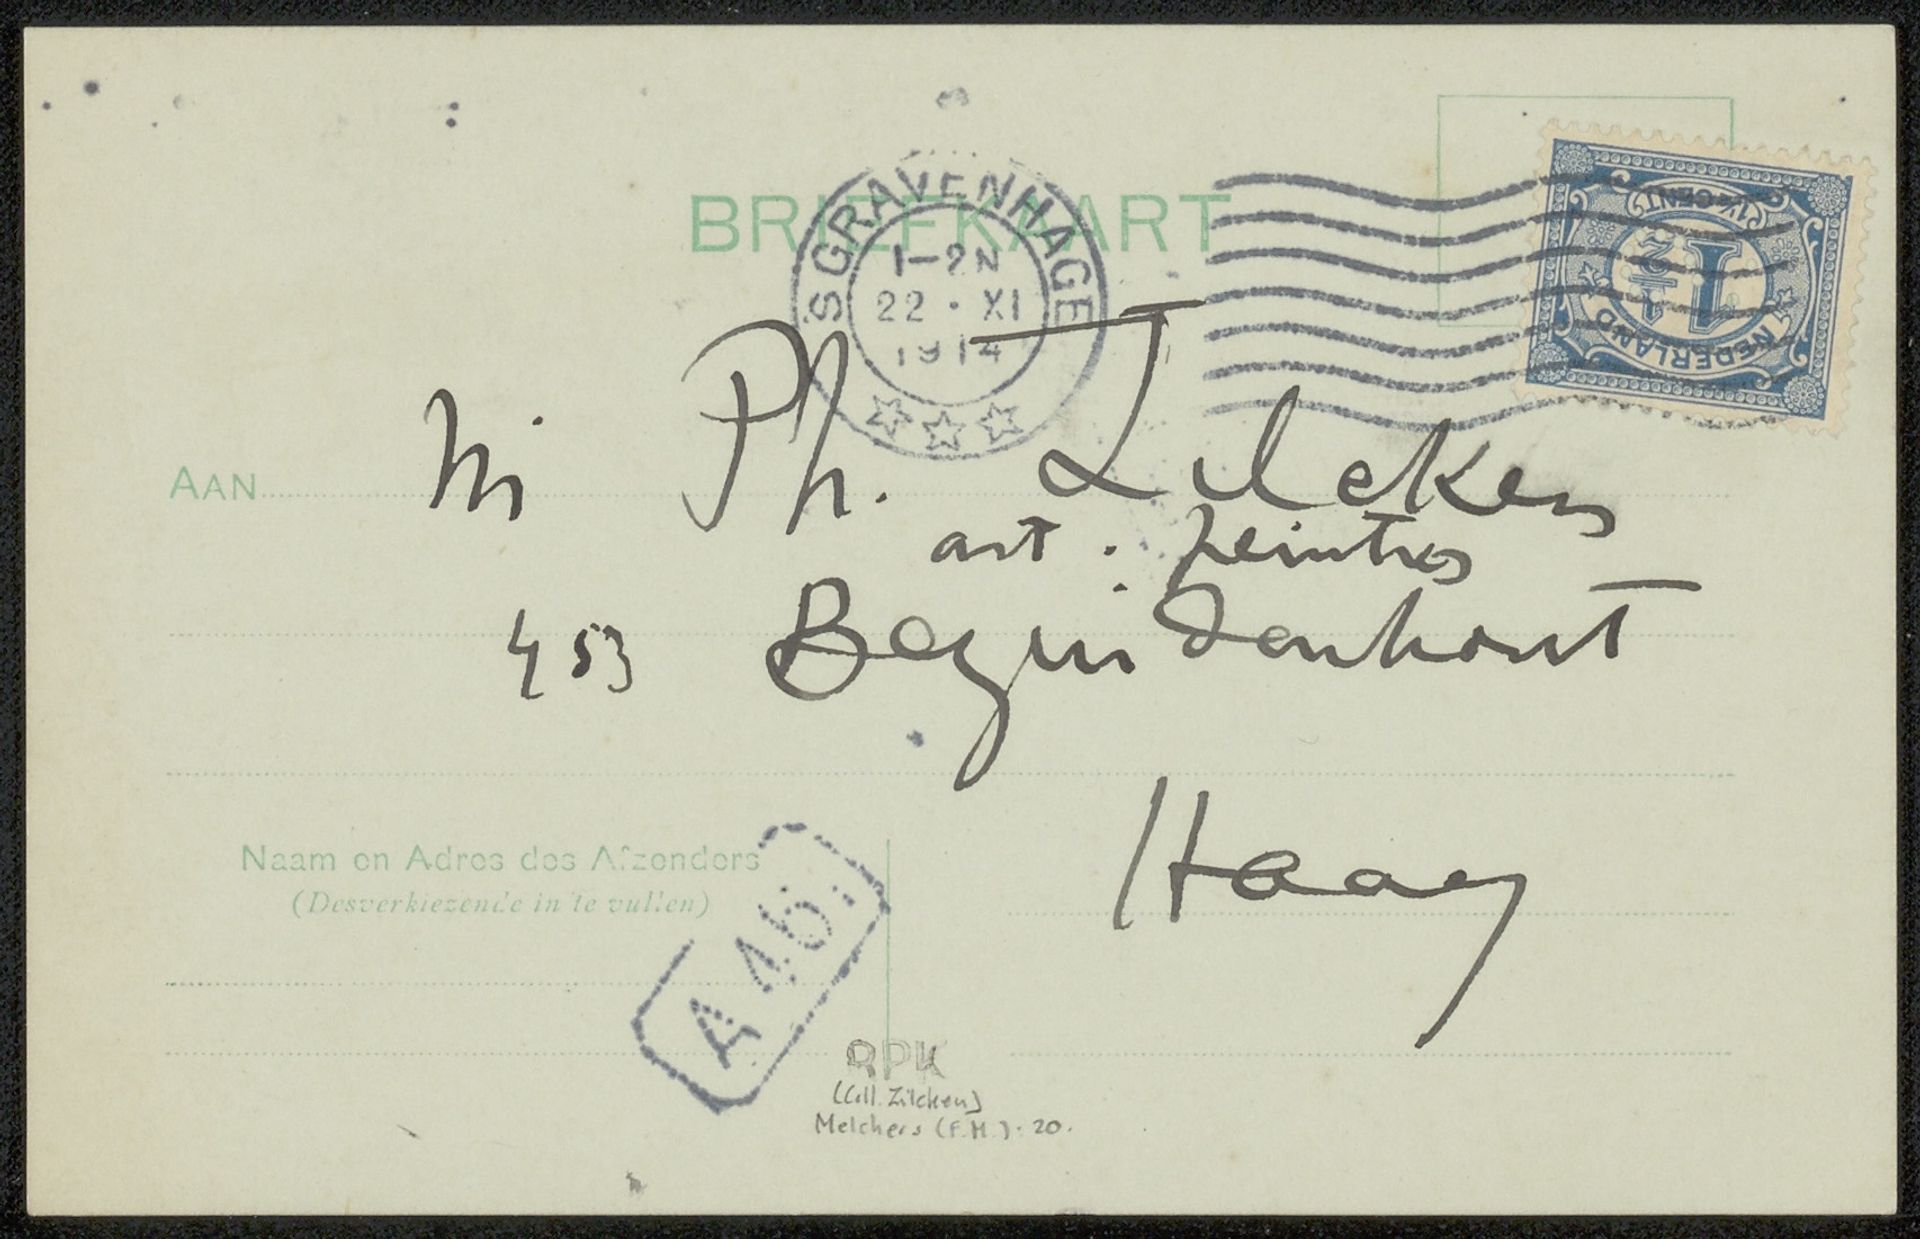 BRIEFKAART
'SGRAVENHAGE
1-2N
22 · XI
1914
1½ CENT
1½
NEDERLAND
AAN
Ph. Zilcken
art. peintre
453 Bezuidenhout
Haag
Naam en Adres des Afzenders
(Desverkiezende in te vullen)
A 46.
RPK
(Coll. Zilcken)
Melchers (F.M.): 20.